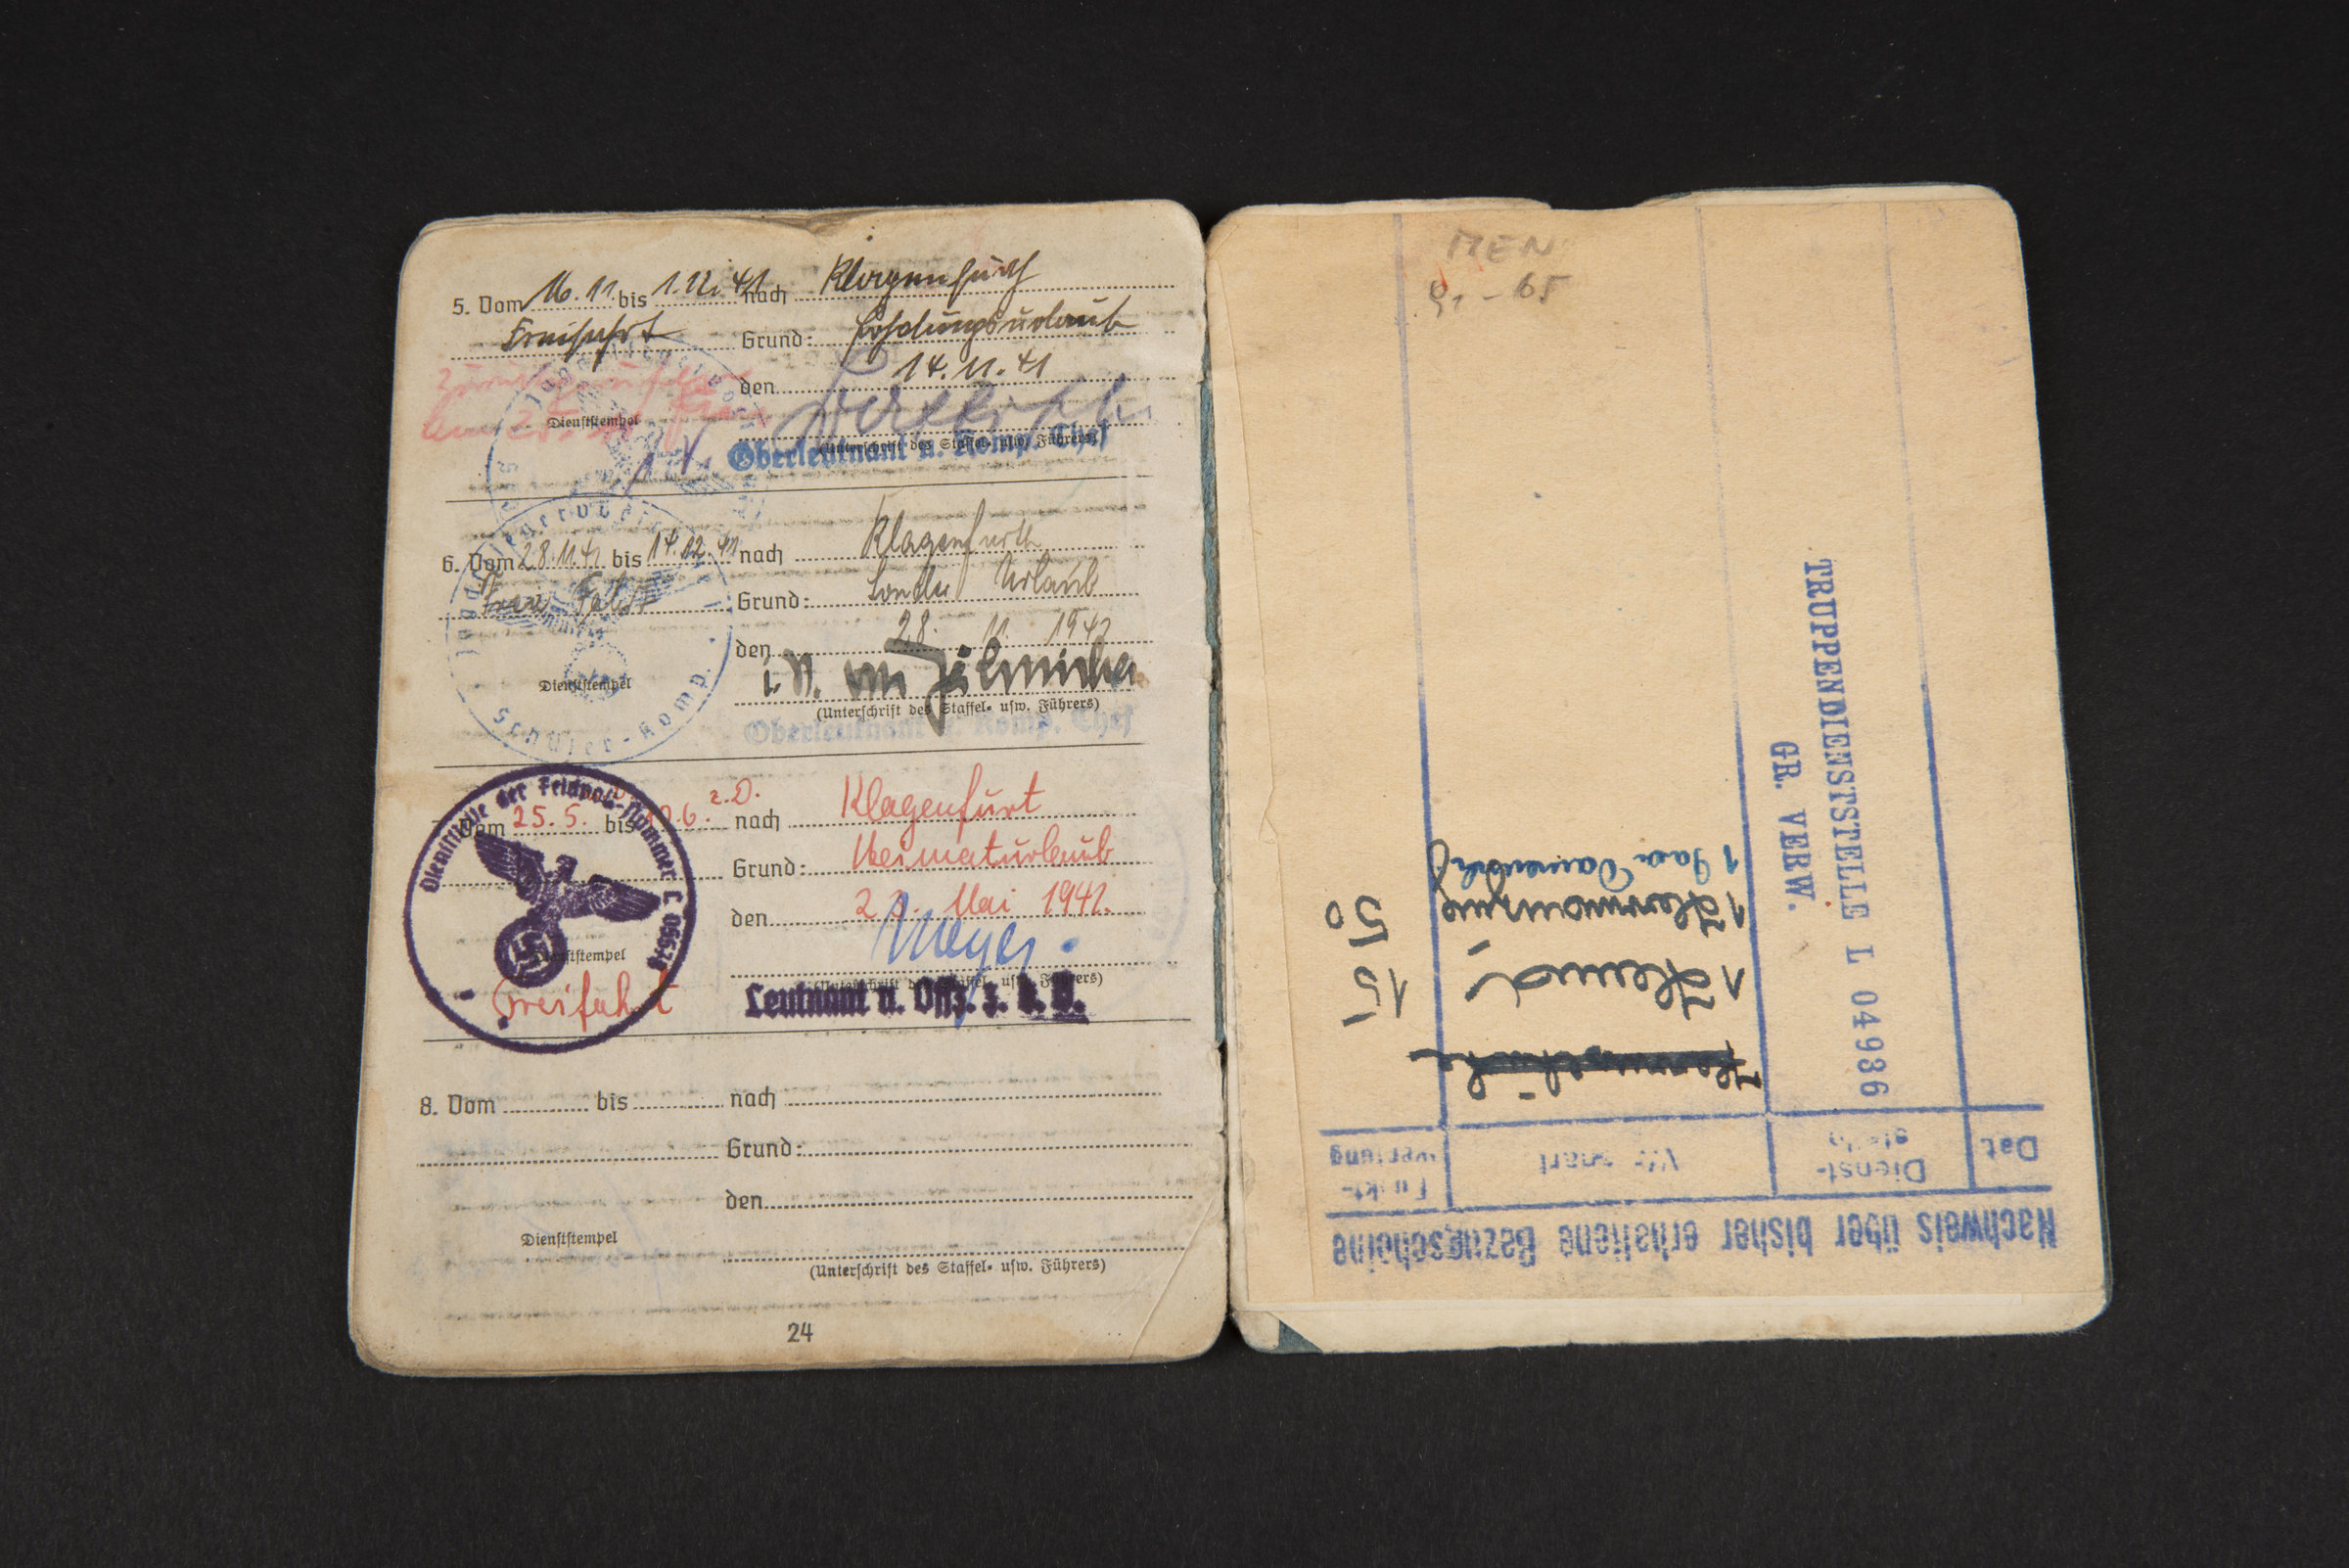 5. Vom 16.11. bis 1.12. 41 nach Klagenfurth
Freifahrt Grund: Erholungsurlaub
den 14.11.41
Dienststempel
(Unterschrift des Staffel- usw. Führers)
Oberleutnant u. Komp. Chef
6. Vom 28.11.41 bis 14.12.41 nach Klagenfurth
Grund: Sonder Urlaub
den 28. 11. 1941
Dienststempel
Schüler-Komp.
(Unterschrift des Staffel- usw. Führers)
Oberleutnant u. Komp. Chef
Dienststelle der Feldpost-Nummer L
z.D.
Vom 25.5. bis nach Klagenfurt
Grund: Heimaturlaub
den Mai 1942.
Meyer
Dienststempel
(Unterschrift des Staffel- usw. Führers)
Freifahrt
Leutnant u. Offz. z. b. V.
8. Vom bis nach
Grund:
den
Dienststempel
(Unterschrift des Staffel- usw. Führers)
24
MEN
Nachweis über bisher erhaltene Bezugscheine
Dat. Dienst-
stelle
Punkt-
wertung
1 Hemd 15
50
TRUPPENDIENSTSTELLE L 04986
GR. VERW.